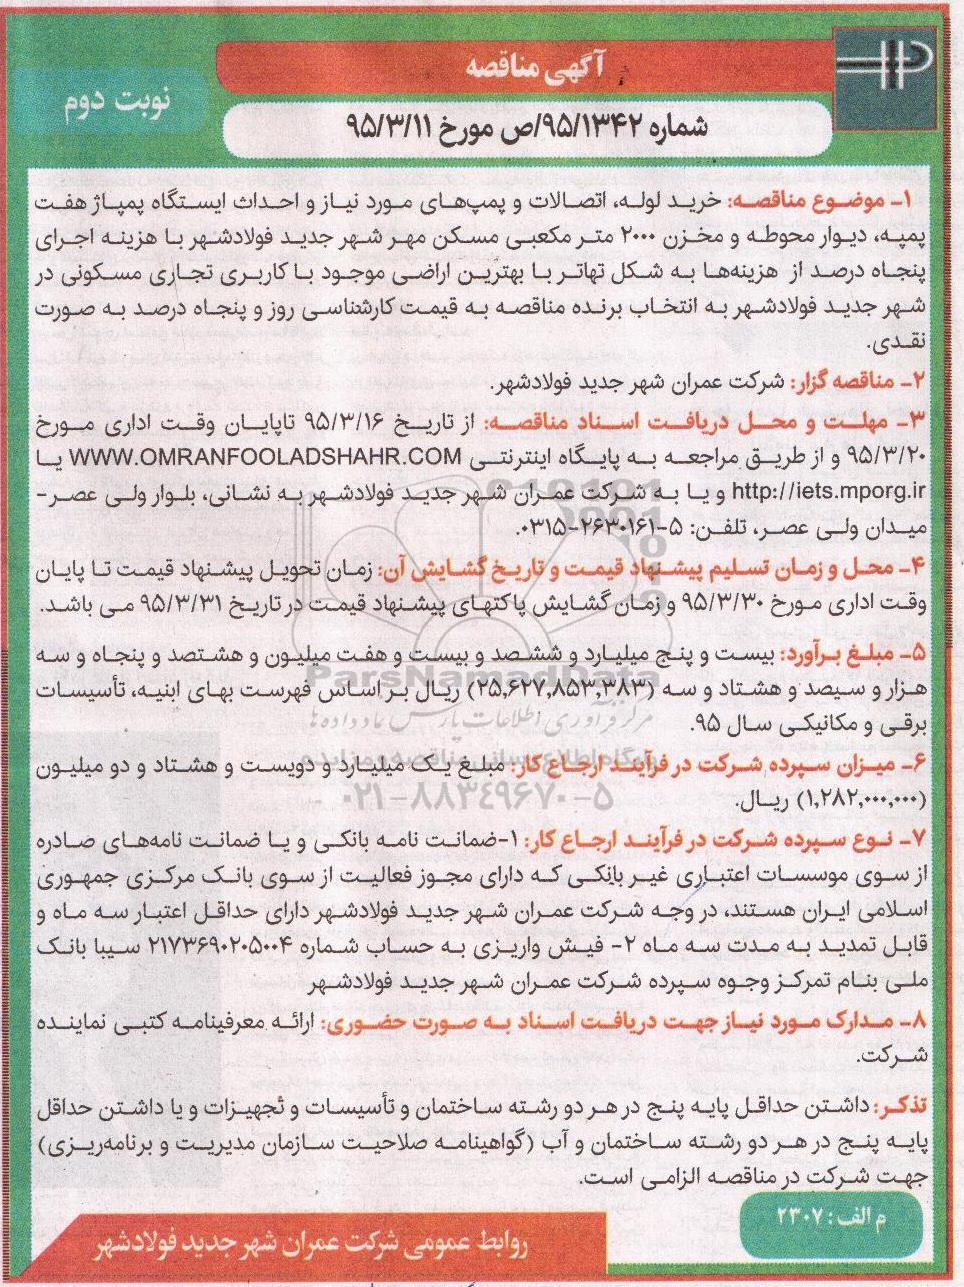 آگهی مناقصه
نوبت دوم
شماره ۹۵/۱۳۴۲/ص مورخ ۹۵/۳/۱۱
۱- موضوع مناقصه: خرید لوله، اتصالات و پمپ‌های مورد نیاز و احداث ایستگاه پمپاژ هفت
پمپه، دیوار محوطه و مخزن ۲۰۰۰ متر مکعبی مسکن مهر شهر جدید فولادشهر با هزینه اجرای
پنجاه درصد از هزینه‌ها به شکل تهاتر با بهترین اراضی موجود با کاربری تجاری مسکونی در
شهر جدید فولادشهر به انتخاب برنده مناقصه به قیمت کارشناسی روز و پنجاه درصد به صورت
نقدی.
۲- مناقصه گزار: شرکت عمران شهر جدید فولادشهر.
۳- مهلت و محل دریافت اسناد مناقصه: از تاریخ ۹۵/۳/۱۶ تاپایان وقت اداری مورخ
۹۵/۳/۲۰ و از طریق مراجعه به پایگاه اینترنتی WWW.OMRANFOOLADSHAHR.COM یا
http://iets.mporg.ir و یا به شرکت عمران شهر جدید فولادشهر به نشانی، بلوار ولی عصر-
میدان ولی عصر، تلفن: ۵-۲۶۳۰۱۶۱-۰۳۱۵.
۴- محل و زمان تسلیم پیشنهاد قیمت و تاریخ گشایش آن: زمان تحویل پیشنهاد قیمت تا پایان
وقت اداری مورخ ۹۵/۳/۳۰ و زمان گشایش پاکتهای پیشنهاد قیمت در تاریخ ۹۵/۳/۳۱ می باشد.
۵- مبلغ برآورد: بیست و پنج میلیارد و ششصد و بیست و هفت میلیون و هشتصد و پنجاه و سه
ParsNamadData
هزار و سیصد و هشتاد و سه (۲۵,۶۲۷,۸۵۳,۳۸۳) ریال بر اساس فهرست بهای ابنیه، تأسیسات
مرکز فرآوری اطلاعات پارس نماد داده‌ها
برقی و مکانیکی سال ۹۵.
پایگاه اطلاع رسانی مناقصه و مزایده
۶- میزان سپرده شرکت در فرآیند ارجاع کار: مبلغ یک میلیارد و دویست و هشتاد و دو میلیون
۰۲۱-۸۸۳۴۹۶۷۰-۵
(۱,۲۸۲,۰۰۰,۰۰۰) ریال.
۷- نوع سپرده شرکت در فرآیند ارجاع کار: ۱-ضمانت نامه بانکی و یا ضمانت نامه‌های صادره
از سوی موسسات اعتباری غیر بانکی که دارای مجوز فعالیت از سوی بانک مرکزی جمهوری
اسلامی ایران هستند، در وجه شرکت عمران شهر جدید فولادشهر دارای حداقل اعتبار سه ماه و
قابل تمدید به مدت سه ماه ۲- فیش واریزی به حساب شماره ۲۱۷۳۶۹۰۲۰۵۰۰۴ سیبا بانک
ملی بنام تمرکز وجوه سپرده شرکت عمران شهر جدید فولادشهر
۸- مدارک مورد نیاز جهت دریافت اسناد به صورت حضوری: ارائه معرفینامه کتبی نماینده
شرکت.
تذکر: داشتن حداقل پایه پنج در هر دو رشته ساختمان و تأسیسات و تجهیزات و یا داشتن حداقل
پایه پنج در هر دو رشته ساختمان و آب (گواهینامه صلاحیت سازمان مدیریت و برنامه‌ریزی)
جهت شرکت در مناقصه الزامی است.
م الف: ۲۳۰۷
روابط عمومی شرکت عمران شهر جدید فولادشهر